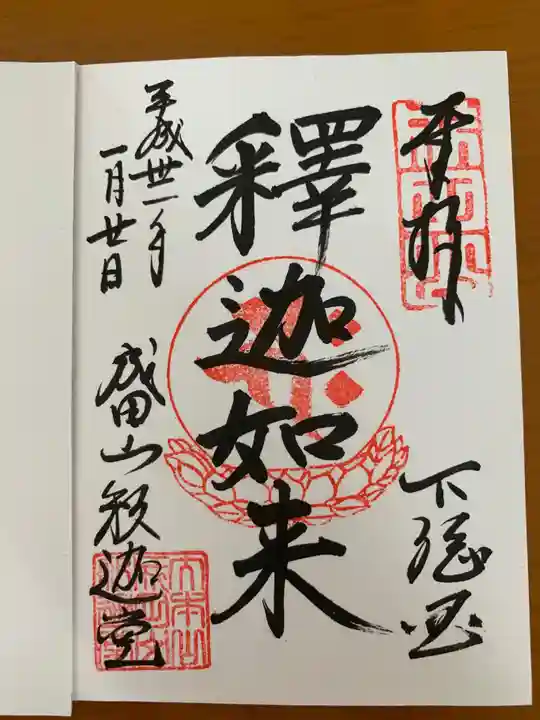 奉拝
下総国
釋迦如来
平成卅一年
一月廿日
成田山釈迦堂